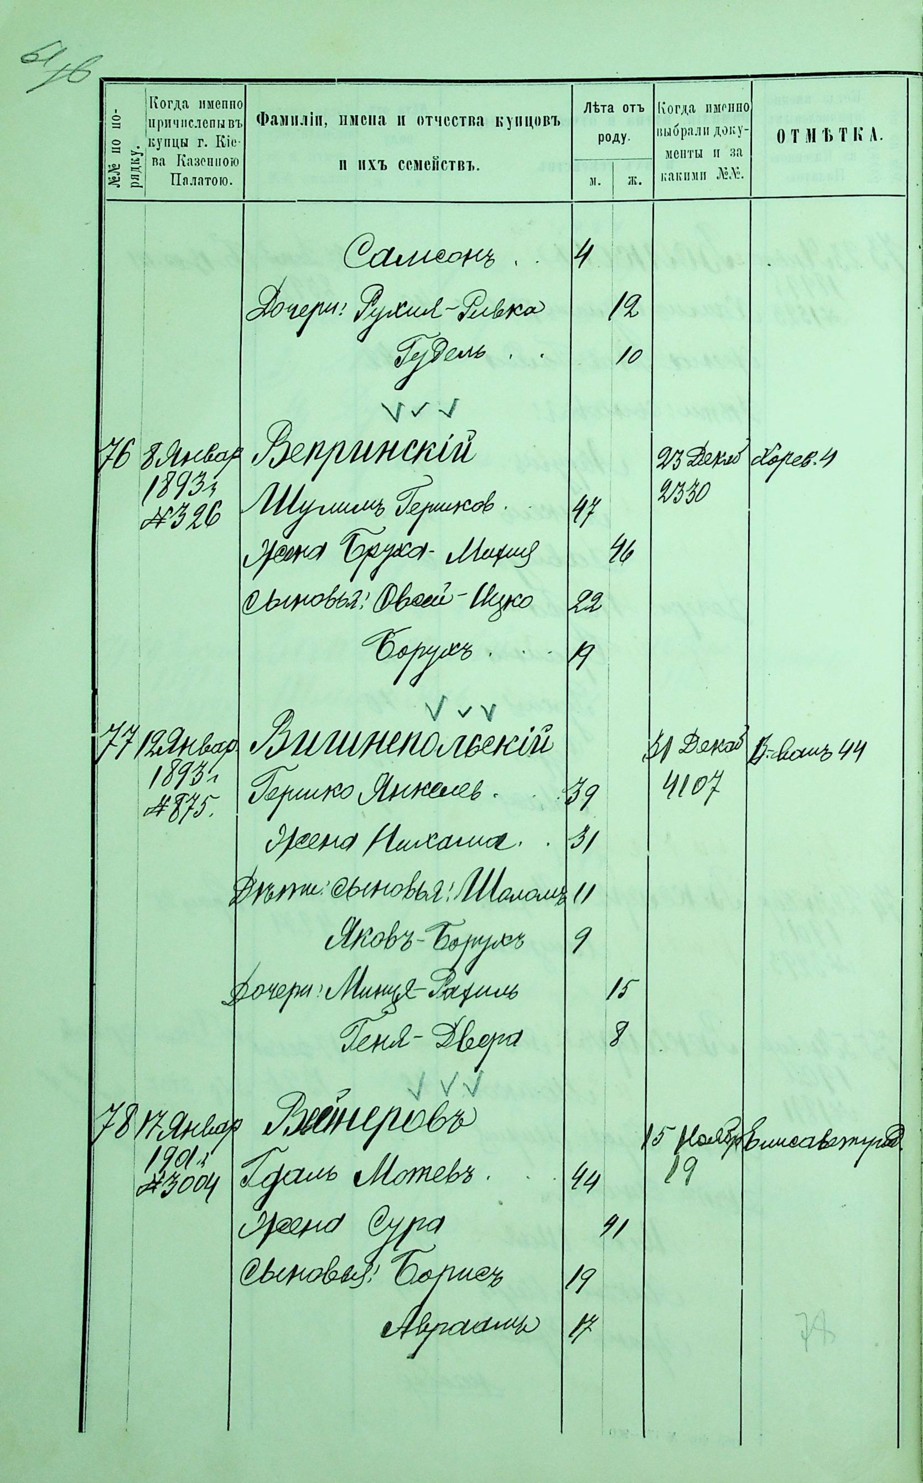 №№ по по-
рядку.
Когда именно
причислены въ
купцы г. Кіе-
ва Казенною
Палатою.
Фамиліи, имена и отчества купцовъ
и ихъ семействъ.
Лѣта отъ
роду.
м. ж.
Когда именно
выбрали доку-
менты и за
какими №№.
ОТМѢТКА.
Самсонъ . . 4
Дочери: Рухля-Ривка 12
Гудель . . 10
76 8 Январ Вепринскій 23 Декаб Хорев. 4
1893 г 2330
№326 Шулимъ Гершков. . 47
Жена Бруха- 46
Сыновья: Овсей-Ицко 22
Борухъ . . . 19
77 12 Январ Вишнепольскій 31 Декаб
44
1893 г. 4107
№875. Гершко Янкелев. . . 39
Жена Нихама. . 31
Дѣти: сыновья: Шоломъ 11
Яковъ-Борухъ 9
Дочери: Минця-Рахиль 15
Геня-Двера 8
78 17 Январ Вейнеровъ 15 Ноябр Елисаветград.
1901 г 19
№3004 Гдаль Мотевъ . . . 44
Жена Сура 41
Сыновья: Борисъ 19
Авраамъ 17
78